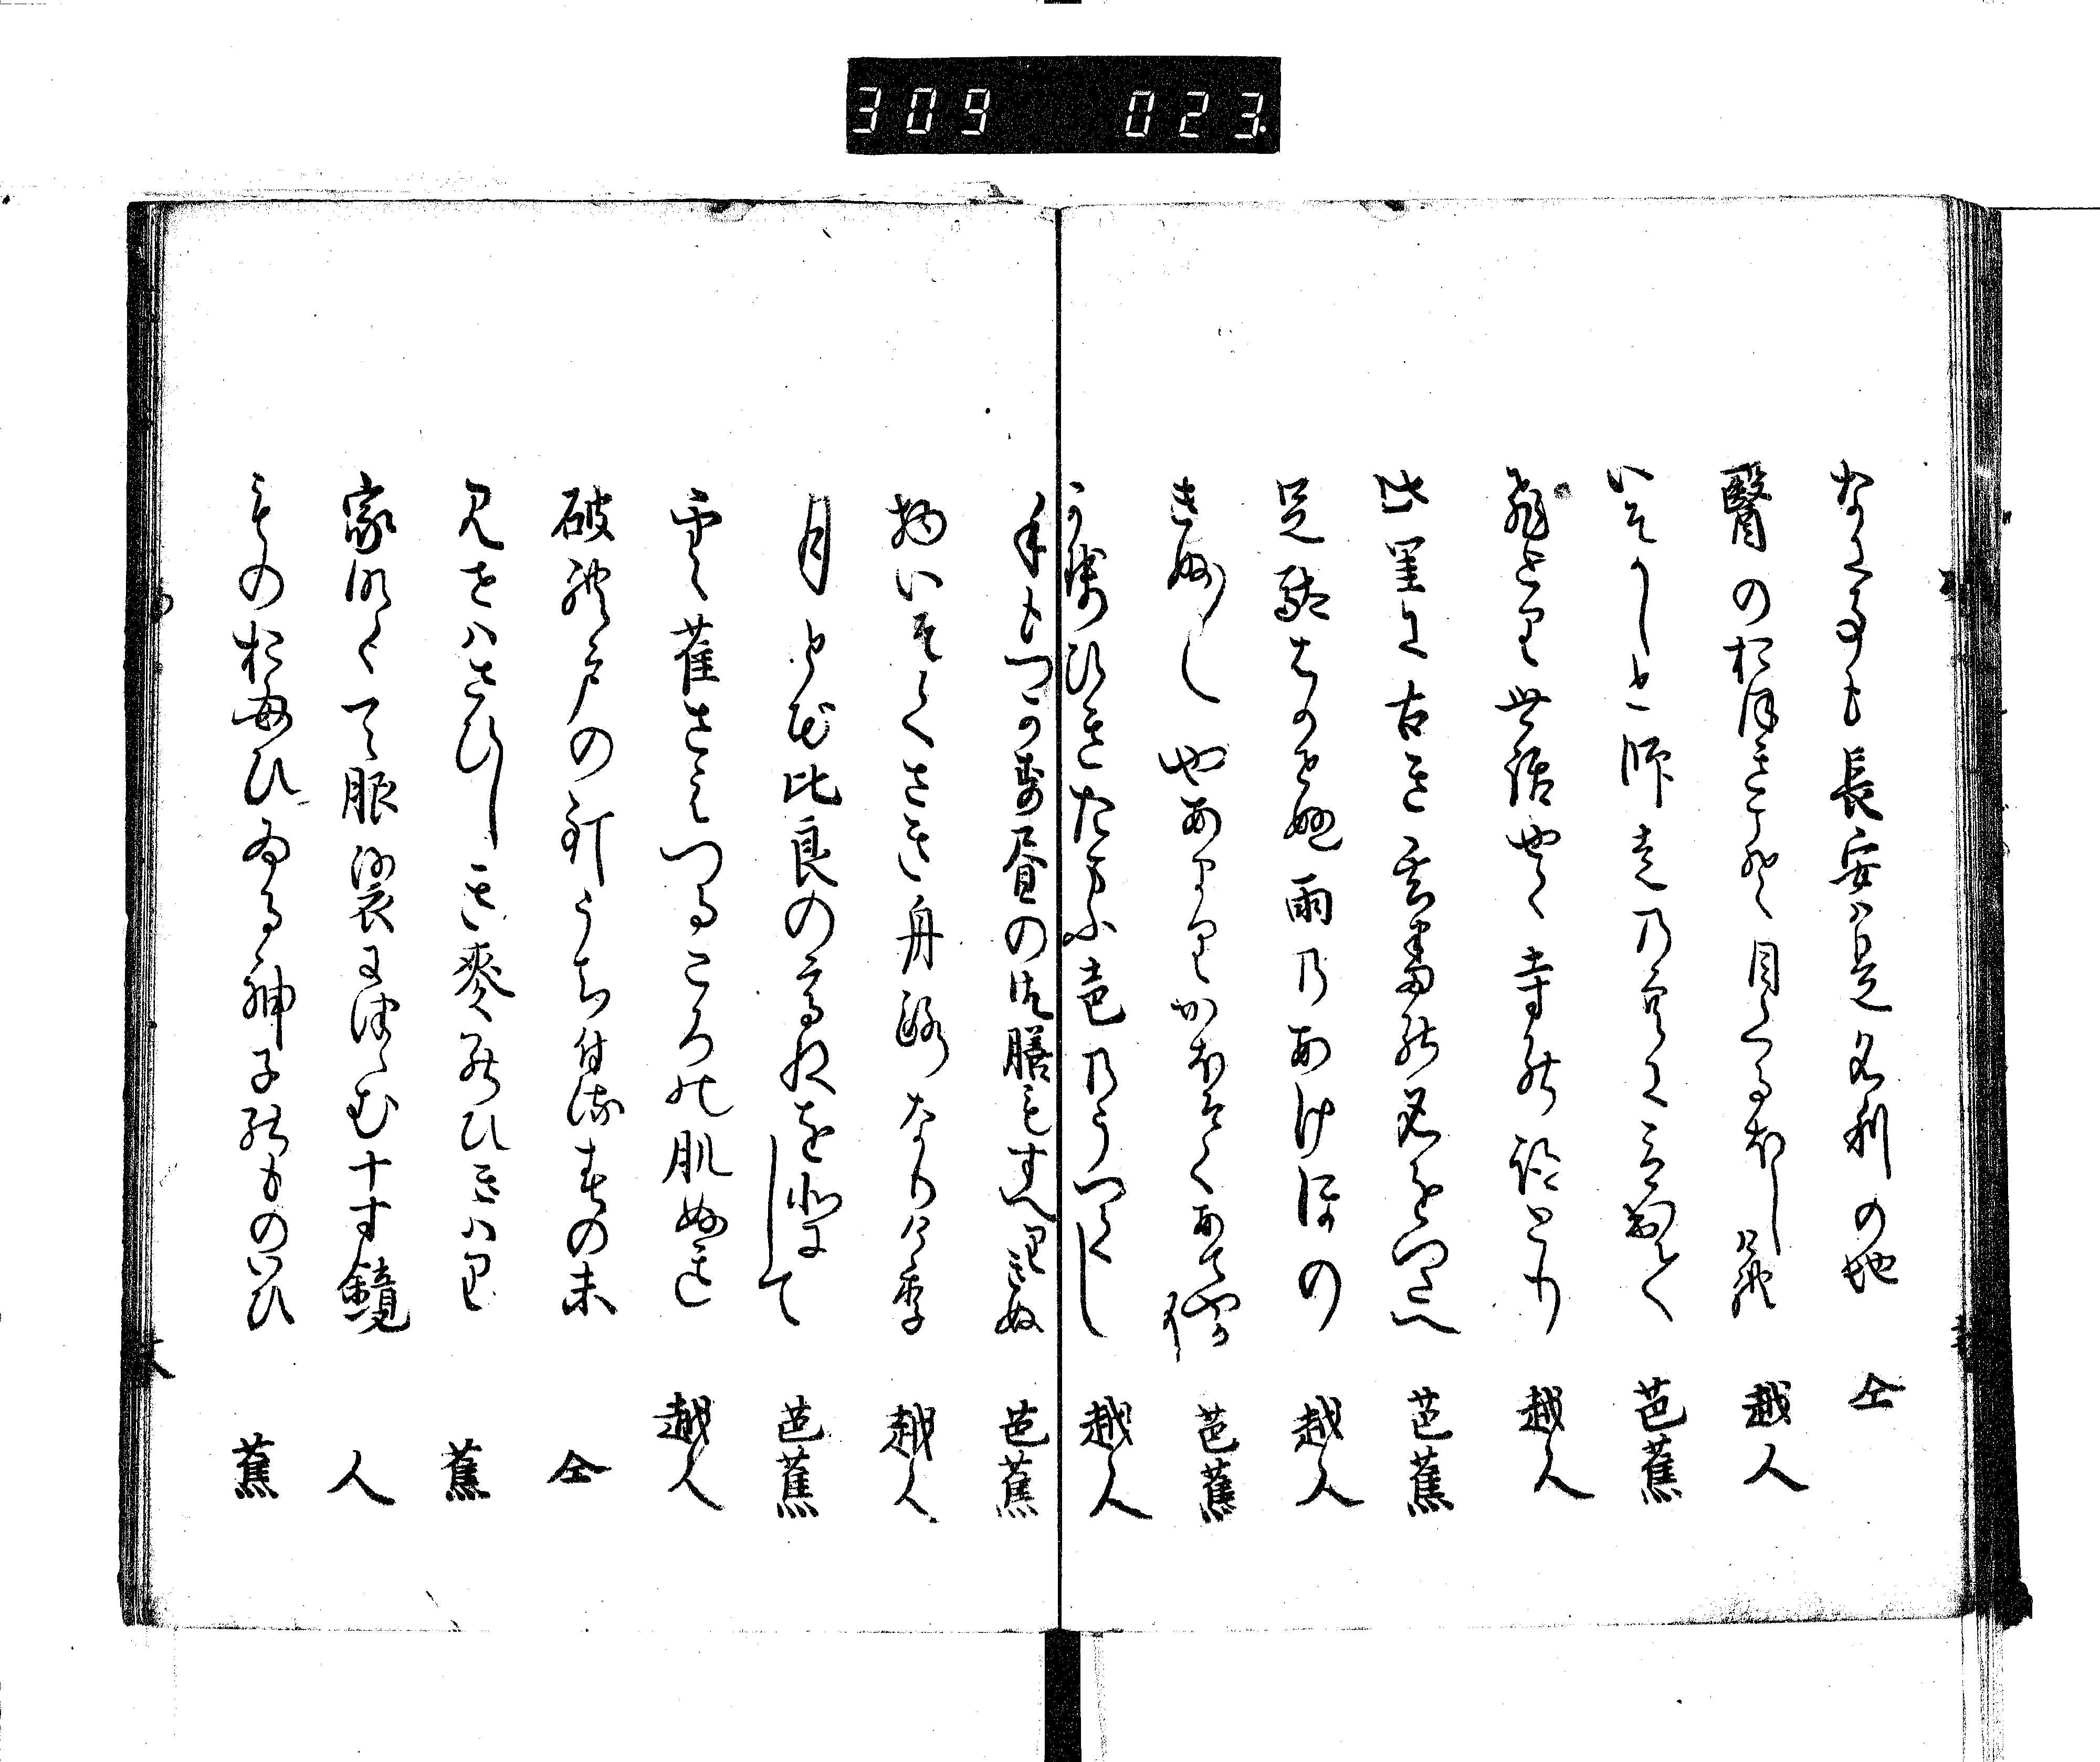 309 023
なに事も長安は是名利の地 仝
醫のおほきこそ目くるほしけれ 越人
いそかしと師走の空に立出て 芭蕉
ひとり世話やく寺の跡とり 越人
此里に古き玄番の名をつたへ 芭蕉
足駄はかせぬ雨のあけほの 越人
きぬ〳〵やあまりかほそくあてやかに 芭蕉
かせひきたまふ声のうつくし 越人
手もつかす昼の御膳もすへりきぬ 芭蕉
物いそくさき舟路なりけり 越人
月と花比良の高ねを北にして 芭蕉
雲雀さえつるころの肌ぬき 越人
破れ戸の釘うち付る春の末 仝
見せはさひしき麥のひきはり 蕉
家なくて服裟につゝむ十寸鏡 人
ものおもひゐる神子のものいひ 蕉